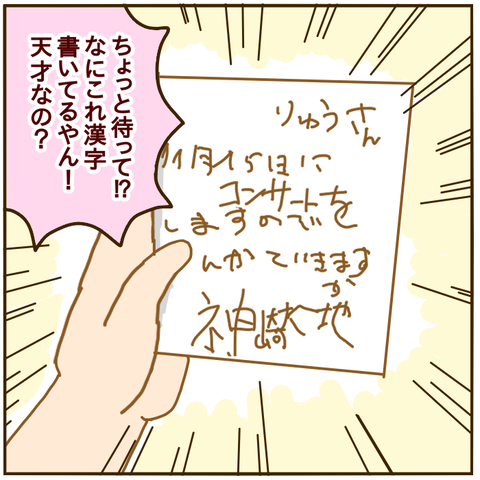 ちょっと待って!?
なにこれ漢字
書いてるやん!
天才なの?
りゅうさん
11月15日に
コンサートを
しますので
んかていきます
か
神崎大地